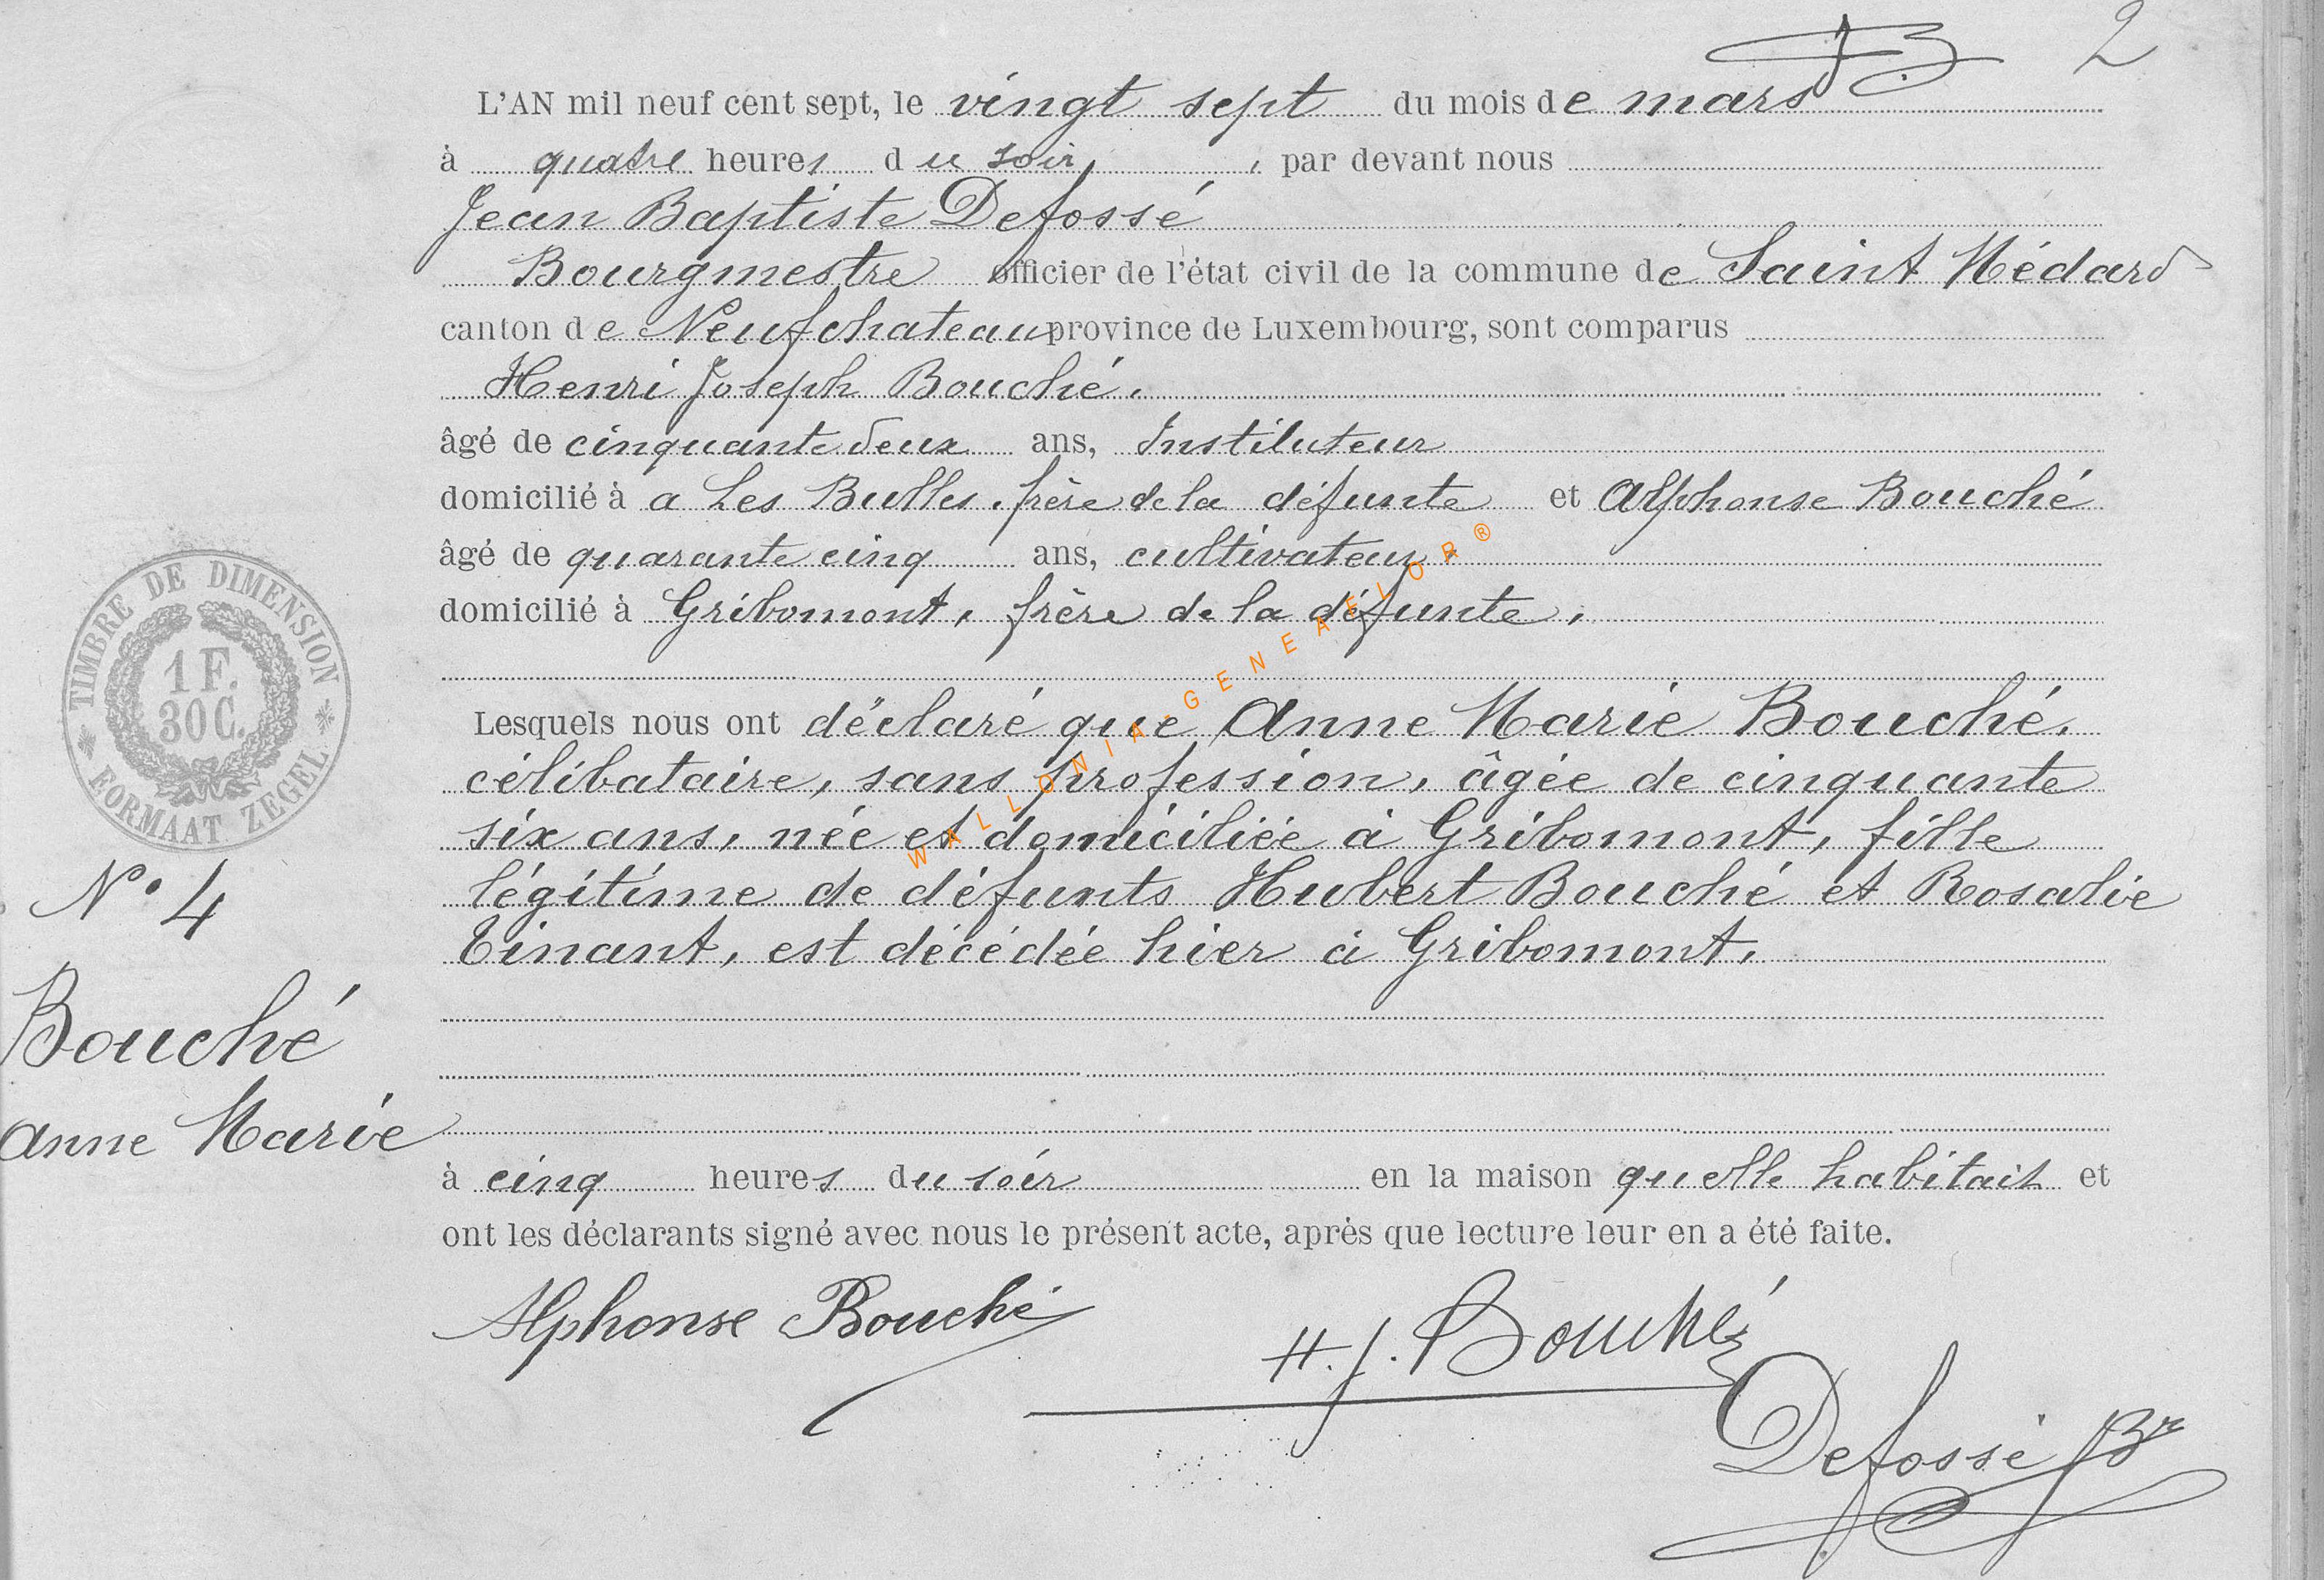 2
L'AN mil neuf cent sept, le vingt sept du mois de mars
à quatre heures du soir, par devant nous
Jean Baptiste Defossé
Bourgmestre officier de l'état civil de la commune de Saint Médard
canton de Neufchateau province de Luxembourg, sont comparus
Henri Joseph Bouché,
âgé de cinquante deux ans, Instituteur
domicilié à a Les Bulles, frère de la défunte et Alphonse Bouché
âgé de quarante cinq ans, cultivateur,
domicilié à Gribomont, frère de la défunte,
Lesquels nous ont déclaré que Anne Marie Bouché,
célibataire, sans profession, âgée de cinquante
six ans, née et domiciliée à Gribomont, fille
légitime de défunts Hubert Bouché et Rosalie
Tinant, est décédée hier à Gribomont,
à cinq heures du soir en la maison qu'elle habitait et
ont les déclarants signé avec nous le présent acte, après que lecture leur en a été faite.
Alphonse Bouché
H. J. Bouché
Defossé Br
TIMBRE DE DIMENSION
1 F.
30 C.
FORMAAT ZEGEL
N° 4
Bouché
Anne Marie
WALLONIA-GENEAFLOR®